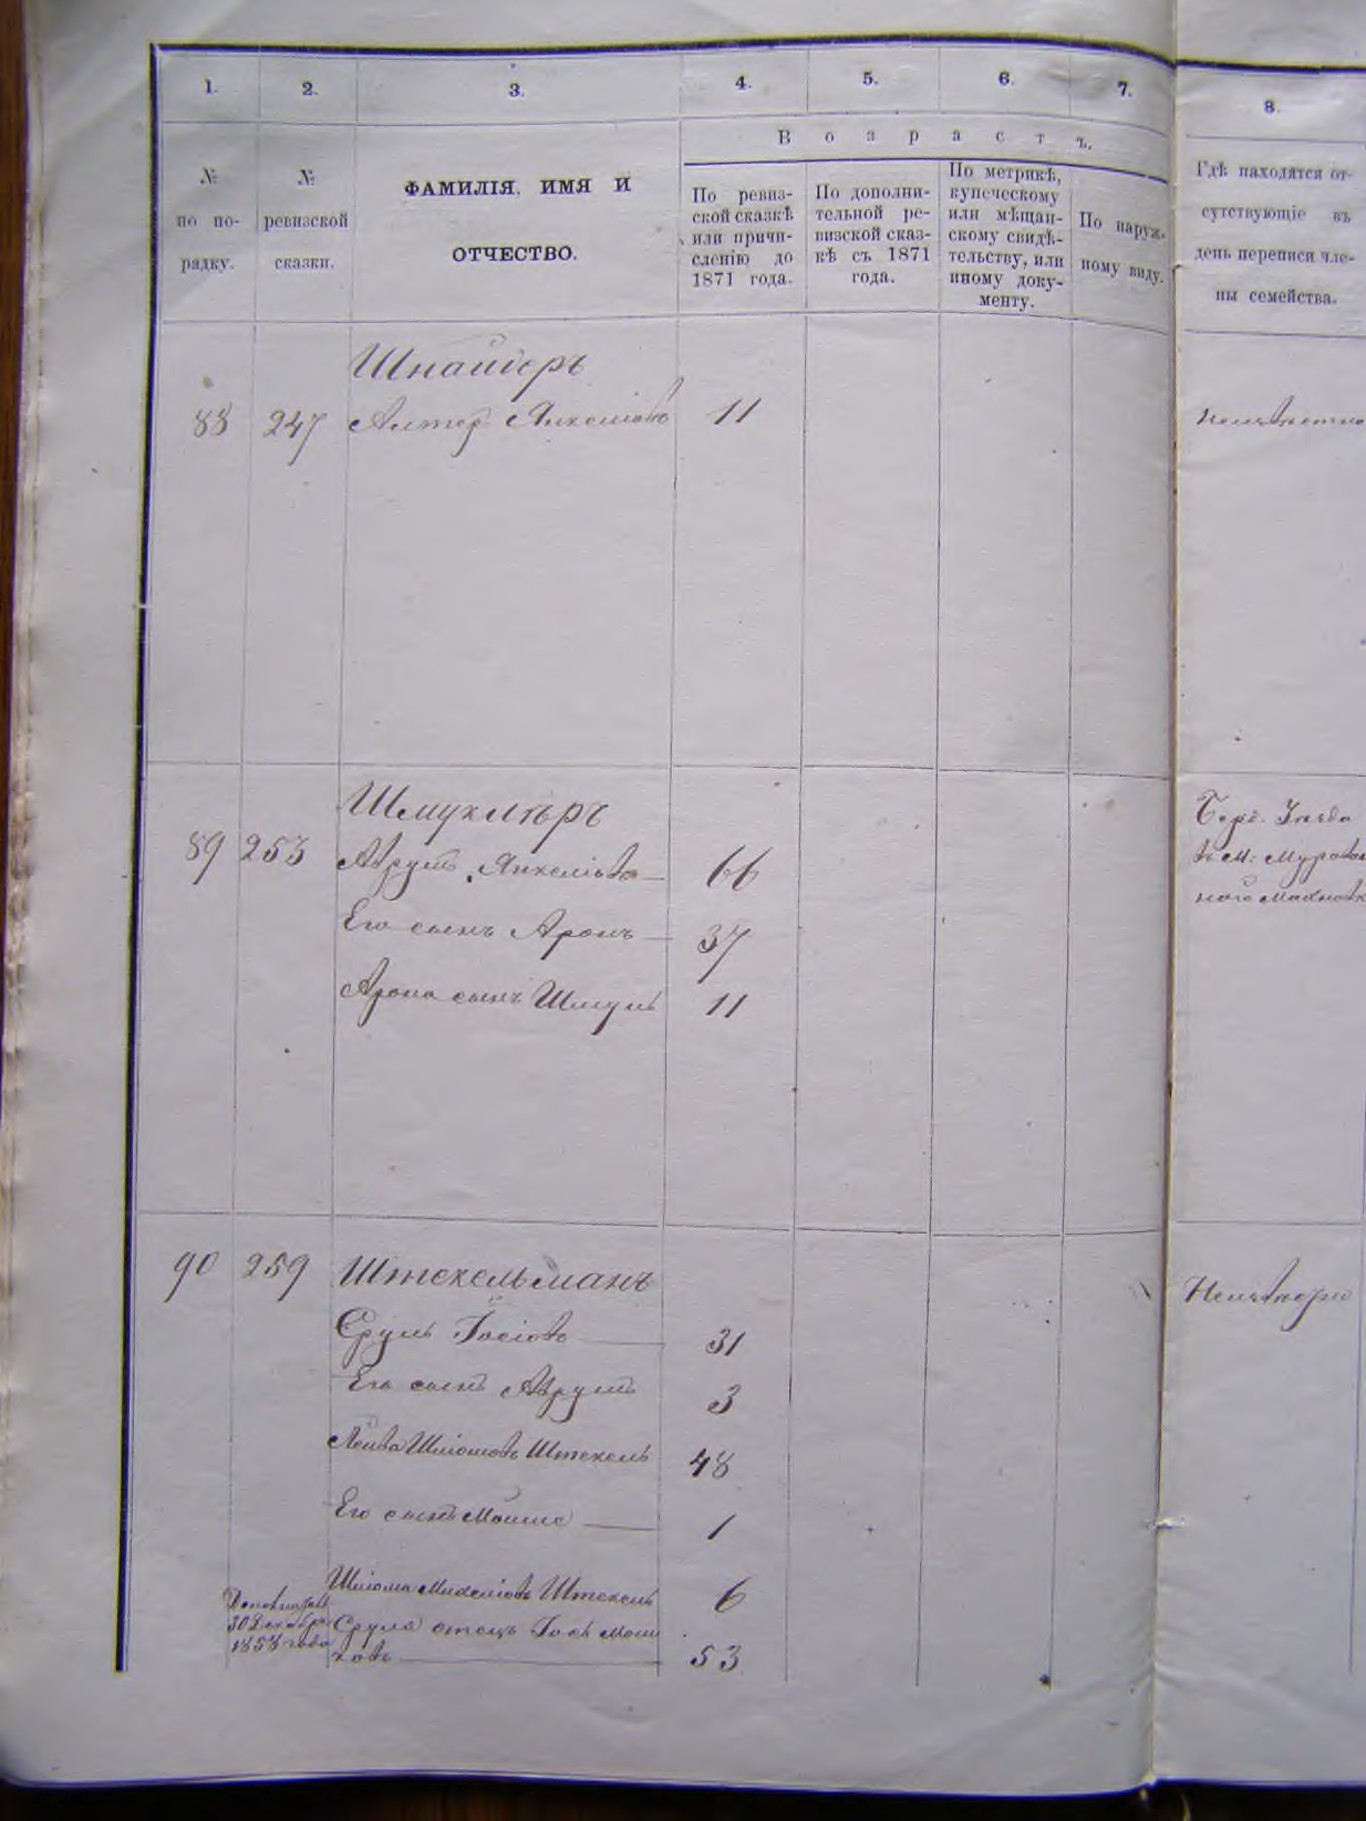 1.
2.
3.
4.
5.
6.
7.
8.
Возрастъ.
№
по по-
рядку.
№
ревизской
сказки.
ФАМИЛІЯ, ИМЯ И
ОТЧЕСТВО.
По ревиз-
ской сказкѣ
или причи-
сленію до
1871 года.
По дополни-
тельной ре-
визской сказ-
кѣ съ 1871
года.
По метрикѣ,
купеческому
или мѣщан-
скому свидѣ-
тельству, или
иному доку-
менту.
По наруж-
ному виду.
Гдѣ находятся от-
сутствующіе въ
день переписи чле-
ны семейства.
Шнайдеръ
88 247 Алтер Янкеліовъ 11
Шмуклѣръ
89 253 Аврумъ Янкеліовъ 66
Его сынъ Аронъ 37
Арона сынъ Шмуль 11
въ м:
90 259 Штекельманъ
Сруль Іосіовъ 31
Его сынъ Аврумъ 3
Лейба Шліомовъ Штекель 48
Его сынъ Мойше 1
Шліома Михеліовъ Штекель 6
30 Декабря
1858 года
Сруля отецъ Іось Мош
ковъ 53